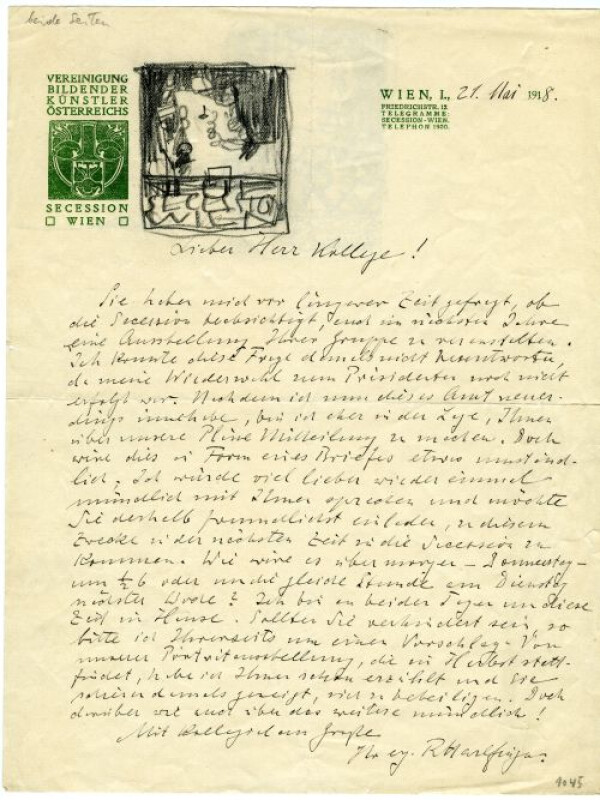 beide Seiten
VEREINIGUNG
BILDENDER
KÜNSTLER
ÖSTERREICHS
SECESSION
WIEN
WIEN, I., 21. Mai 1918.
FRIEDRICHSTR. 12
TELEGRAMME:
SECESSION-WIEN.
TELEPHON 1900.
SECESSION
WIEN
Lieber Herr Kollege!
Sie haben mich vor längerer Zeit gefragt, ob
die Secession beabsichtigt, auch im nächsten Jahre
eine Ausstellung Ihrer Gruppe zu veranstalten.
Ich konnte diese Frage damals nicht beantworten,
da meine Wiederwahl zum Präsidenten noch nicht
erfolgt war. Nachdem ich nun dieses Amt neuer-
dings innehabe, bin ich eher in der Lage, Ihnen
über unsere Pläne Mitteilung zu machen. Doch
wäre dies in Form eines Briefes etwas umständ-
lich. Ich würde viel lieber wieder einmal
mündlich mit Ihnen sprechen und möchte
Sie deshalb freundlichst einladen, zu diesem
Zwecke in der nächsten Zeit in die Secession zu
kommen. Wie wäre es übermorgen – Donnerstag –
um ½ 6 oder um die gleiche Stunde am Dienstag
nächster Woche? Ich bin an beiden Tagen um diese
Zeit im Hause. Sollten Sie verhindert sein, so
bitte ich Ihrerseits um einen Vorschlag. Von
unserer Porträtausstellung, die im Herbst statt-
findet, habe ich Ihnen schon erzählt und Sie
schienen damals geneigt, sich zu beteiligen. Doch
darüber wie auch über das weitere mündlich!
Mit kollegialem Gruße
Ihr erg. R Harlfinger
1045